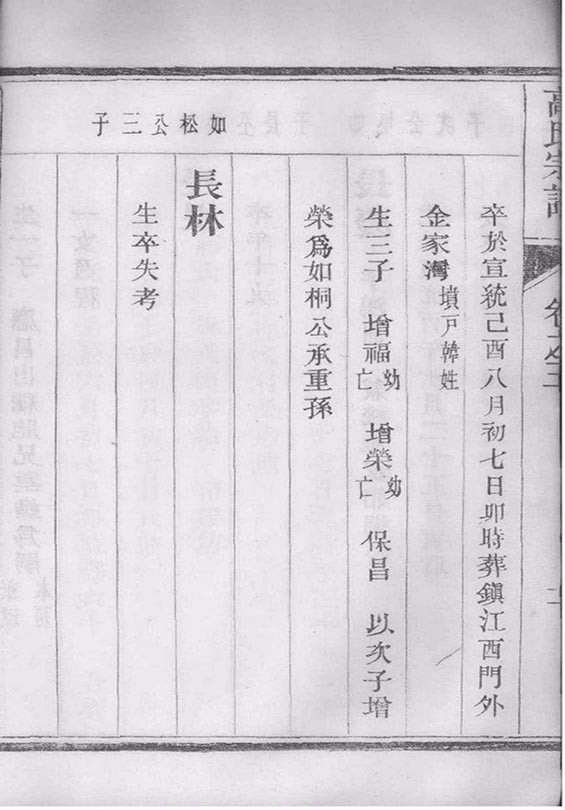 高氏宗譜
卷之三
卒於宣統己酉八月初七日卯時葬鎮江西門外
金家灣墳戸韓姓
生三子 增福幼亡 增榮幼亡 保昌 以次子增
榮爲如桐公承重孫
如松公三子
長林
生卒失考